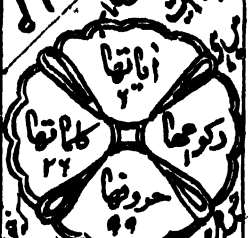 آیاتها
٦
رکوعها
کلماتها
٢٦
حروفها
٩٩